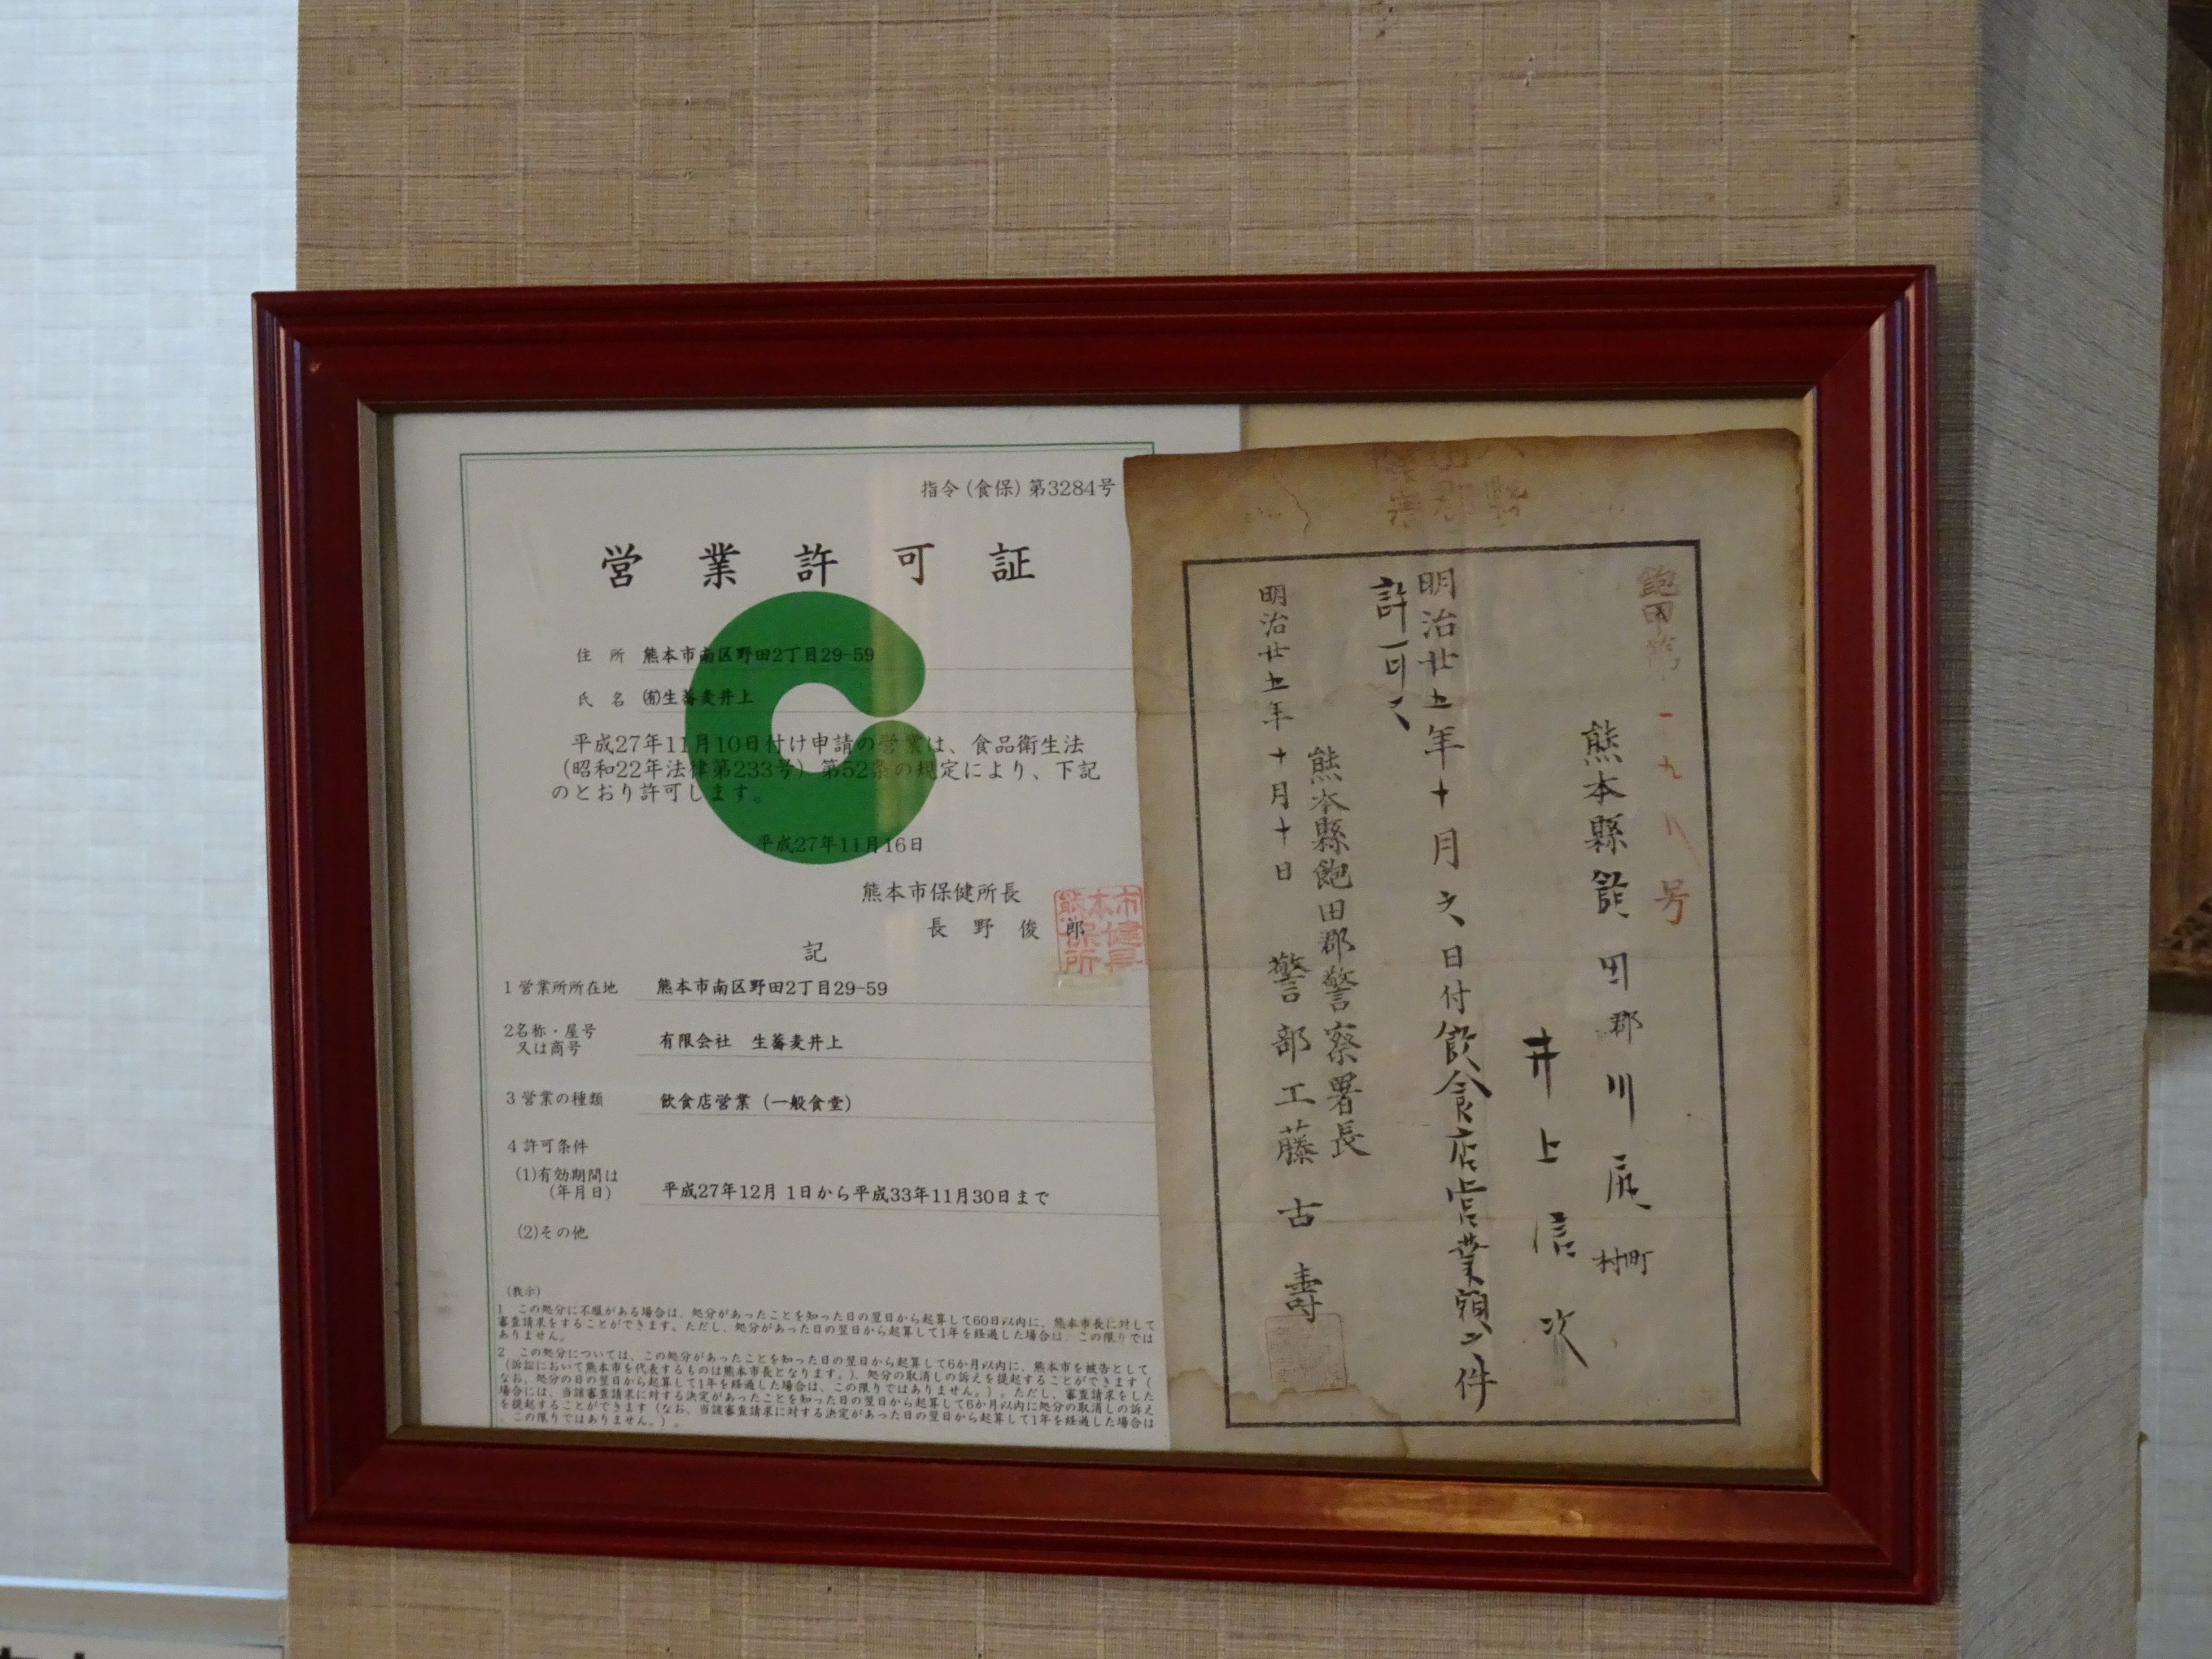 指令(食保)第3284号
営業許可証
住所 熊本市南区野田2丁目29-59
氏名 ㈲生蕎麦井上
平成27年11月10日付け申請の営業は、食品衛生法
(昭和22年法律第233号)第52条の規定により、下記
のとおり許可します。
平成27年11月16日
熊本市保健所長
長野俊郎
記
1 営業所所在地 熊本市南区野田2丁目29-59
2名称・屋号
又は商号 有限会社 生蕎麦井上
3 営業の種類 飲食店営業(一般食堂)
4 許可条件
(1)有効期間は
(年月日) 平成27年12月 1日から平成33年11月30日まで
(2)その他
(教示)
1 この処分に不服がある場合は、処分があったことを知った日の翌日から起算して60日以内に、熊本市長に対して
審査請求をすることができます。ただし、処分があった日の翌日から起算して1年を経過した場合は、この限りでは
ありません。
2 この処分については、この処分があったことを知った日の翌日から起算して6か月以内に、熊本市を被告として
(訴訟において熊本市を代表するものは熊本市長となります。)、処分の取消しの訴えを提起することができます(
なお、処分の日の翌日から起算して1年を経過した場合は、この限りではありません。)。ただし、審査請求をした
場合には、当該審査請求に対する決定があったことを知った日の翌日から起算して6か月以内に処分の取消しの訴え
を提起することができます(なお、当該審査請求に対する決定があった日の翌日から起算して1年を経過した場合は
、この限りではありません。)。
飽甲第一九八号
熊本縣飽田郡川尻村町
井上信次
明治廿五年十月六日付飲食店営業願ノ件
許可ス
熊本縣飽田郡警察署長
明治廿五年十月十日 警部工藤古壽